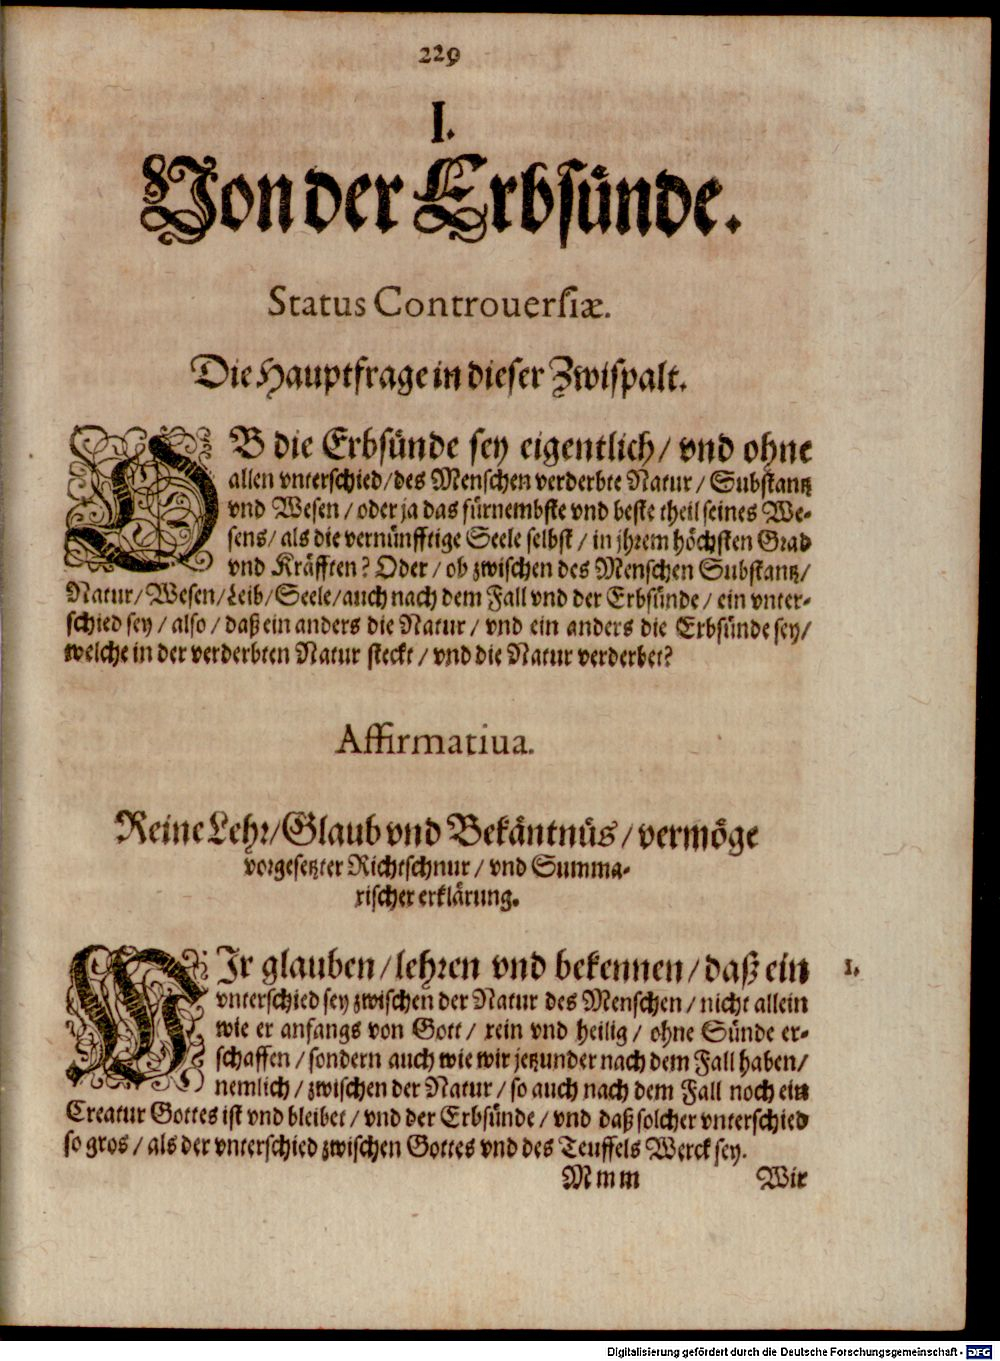 229
I.
Von der Erbsünde.
Status Controuersiæ.
Die Hauptfrage in dieser Zwispalt.
OB die Erbsünde sey eigentlich / vnd ohne
allen vnterschied / des Menschen verderbte Natur / Substantz
vnd Wesen / oder ja das fürnembste vnd beste theil seines We-
sens / als die vernünfftige Seele selbst / in jhrem höchsten Grad
vnd Kräfften? Oder / ob zwischen des Menschen Substantz /
Natur / Wesen / Leib / Seele / auch nach dem Fall vnd der Erbsünde / ein vnter-
schied sey / also / daß ein anders die Natur / vnd ein anders die Erbsünde sey /
welche in der verderbten Natur steckt / vnd die Natur verderbet?
Affirmatiua.
Reine Lehr / Glaub vnd Bekäntnüs / vermöge
vorgesetzter Richtschnur / vnd Summa-
rischer erklärung.
WIr glauben / lehren vnd bekennen / daß ein
1.
vnterschied sey zwischen der Natur des Menschen / nicht allein
wie er anfangs von Gott / rein vnd heilig / ohne Sünde er-
schaffen / sondern auch wie wir jetzunder nach dem Fall haben /
nemlich / zwischen der Natur / so auch nach dem Fall noch ein
Creatur Gottes ist vnd bleibet / vnd der Erbsünde / vnd daß solcher vnterschied
so gros / als der vnterschied zwischen Gottes vnd des Teuffels Werck sey.
Mmm Wir
Digitalisierung gefördert durch die Deutsche Forschungsgemeinschaft - DFG